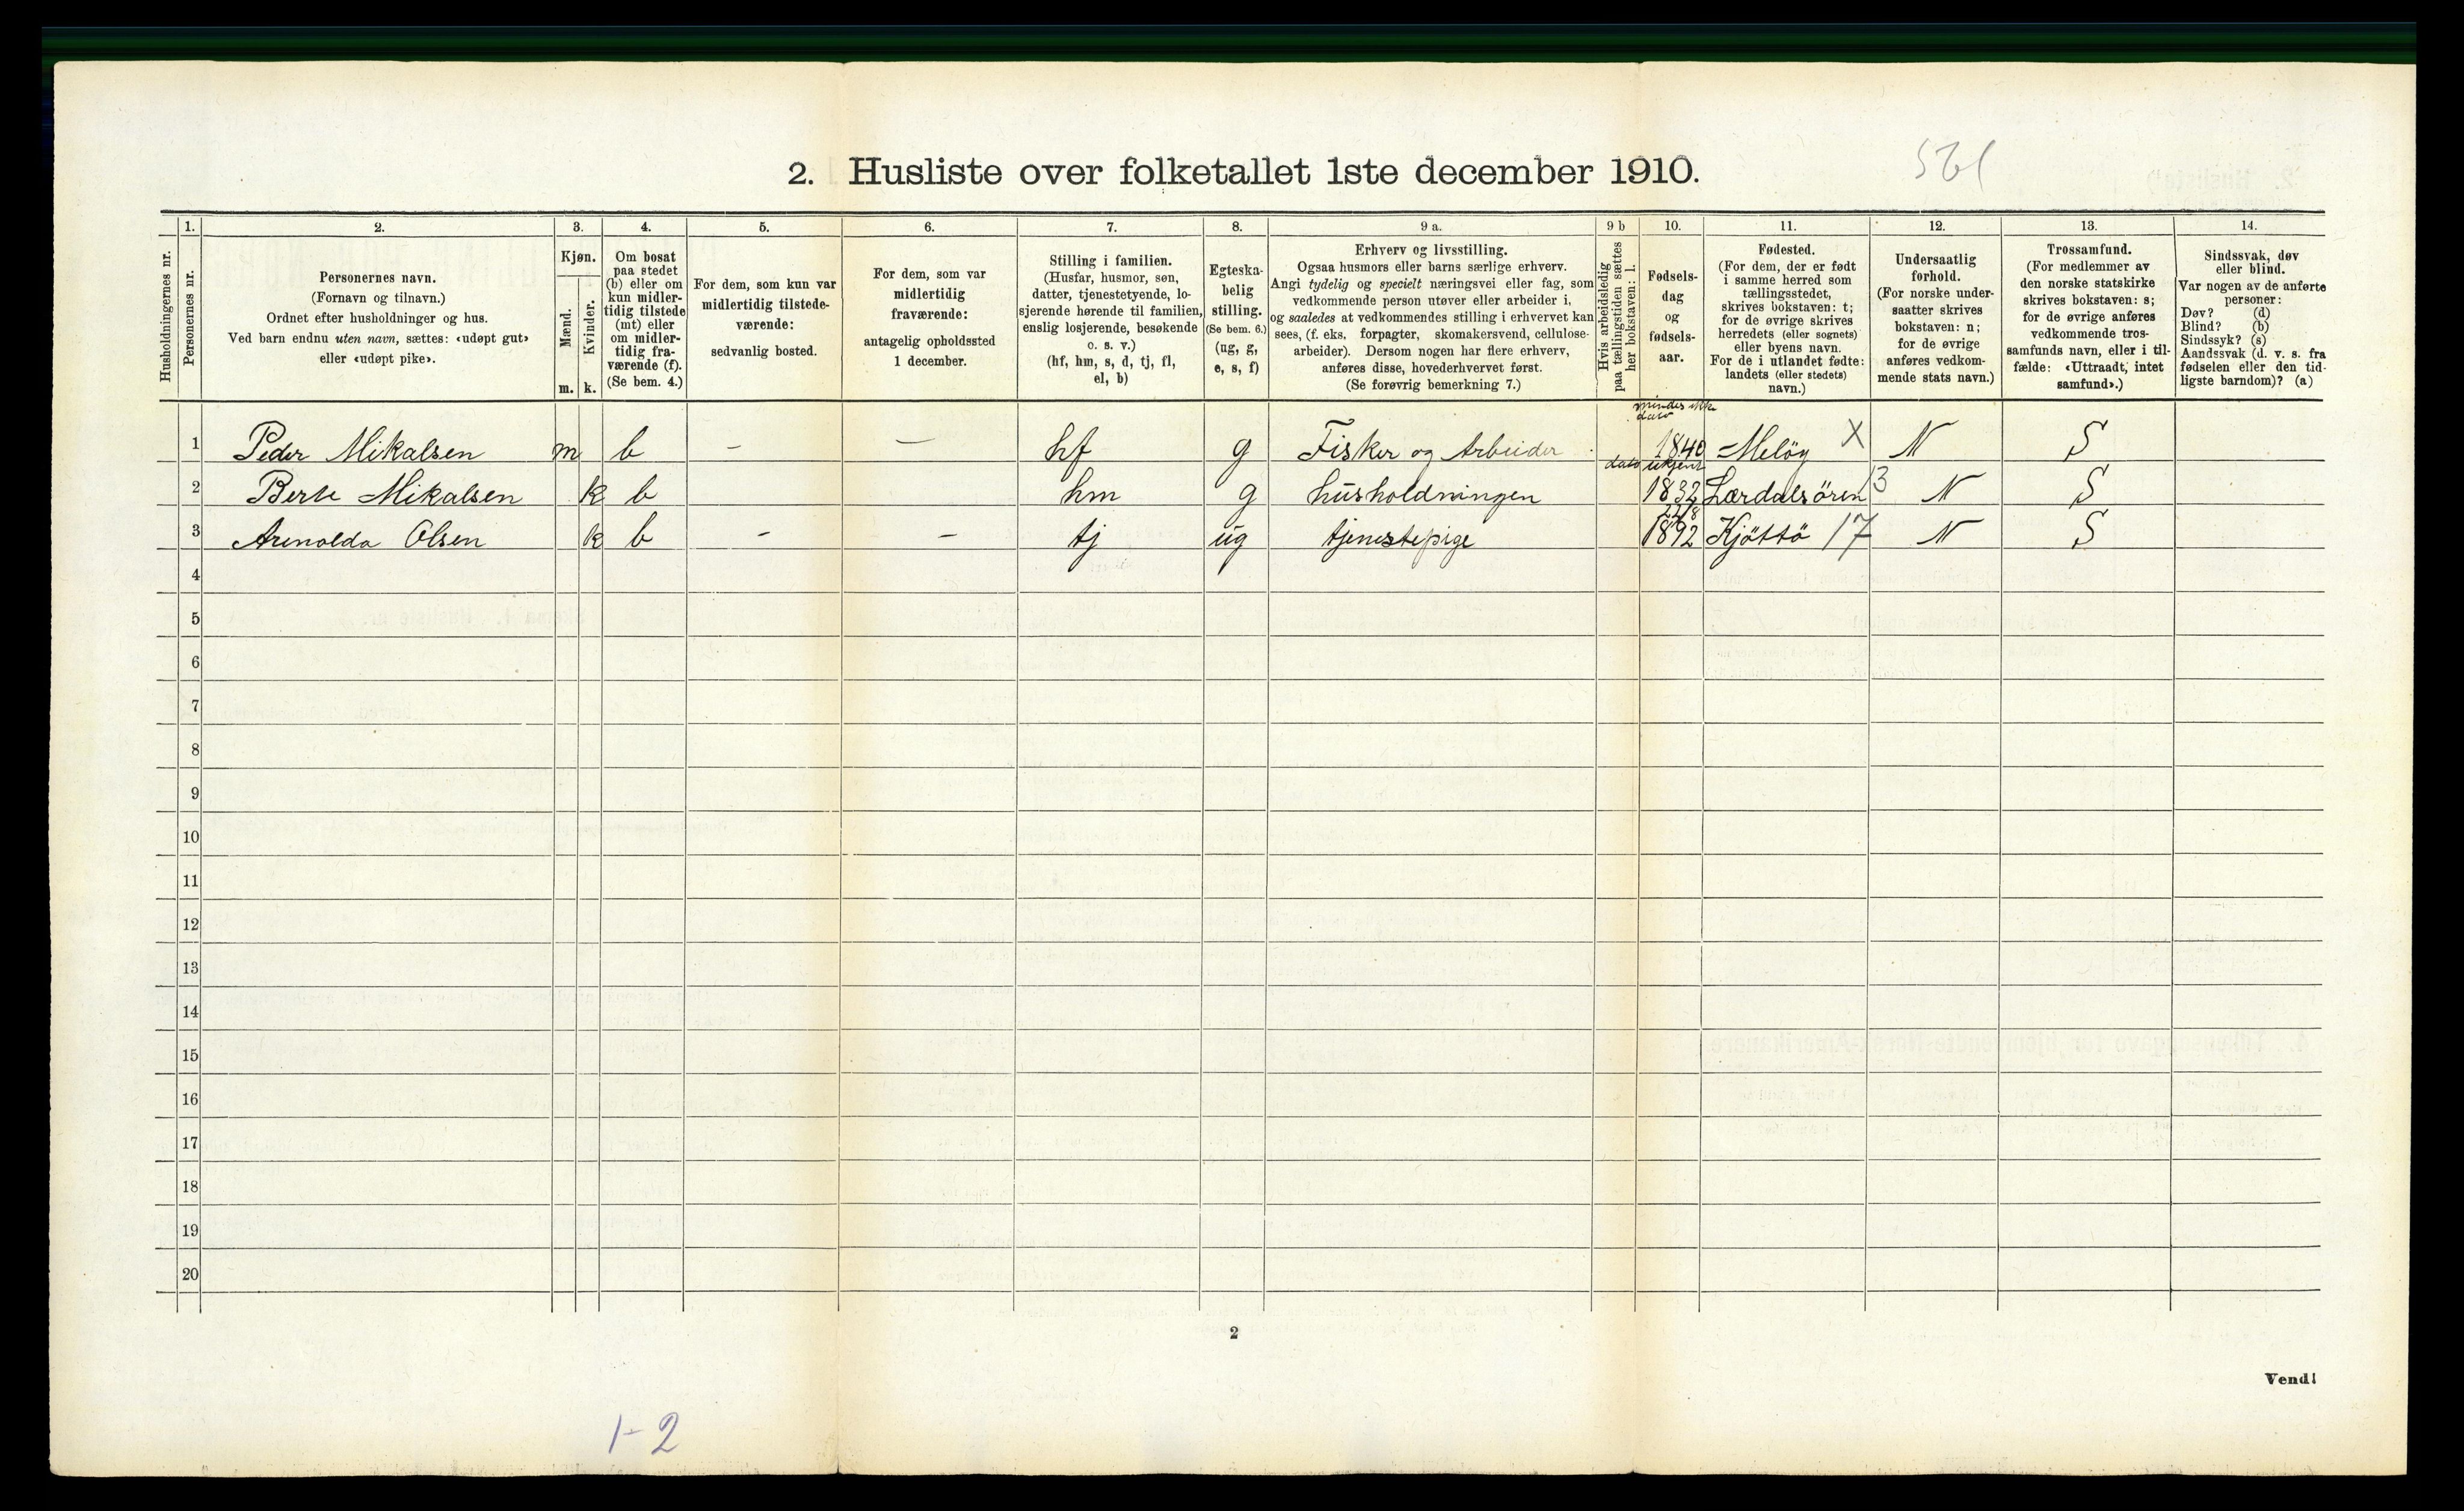 561
2. Husliste over folketallet 1ste december 1910.
Husholdningernes nr.
1.
Personernes nr.
2.
Personernes navn.
(Fornavn og tilnavn.)
Ordnet efter husholdninger og hus.
Ved barn endnu uten navn, sættes: «udøpt gut»
eller «udøpt pike».
3.
Kjøn.
Mænd.
Kvinder.
m. k.
4.
Om bosat
paa stedet
(b) eller om
kun midler-
tidig tilstede
(mt) eller
om midler-
tidig fra-
værende (f).
(Se bem. 4.)
5.
For dem, som kun var
midlertidig tilstede-
værende:
sedvanlig bosted.
6.
For dem, som var
midlertidig
fraværende:
antagelig opholdssted
1 december.
7.
Stilling i familien.
(Husfar, husmor, søn,
datter, tjenestetyende, lo-
sjerende hørende til familien,
enslig losjerende, besøkende
o. s. v.)
(hf, hm, s, d, tj, fl,
el, b)
8.
Egteska-
belig
stilling.
(Se bem. 6.)
(ug, g,
e, s, f)
9 a.
Erhverv og livsstilling.
Ogsaa husmors eller barns særlige erhverv.
Angi tydelig og specielt næringsvei eller fag, som
vedkommende person utøver eller arbeider i,
og saaledes at vedkommendes stilling i erhvervet kan
sees, (f. eks. forpagter, skomakersvend, cellulose-
arbeider). Dersom nogen har flere erhverv,
anføres disse, hovederhvervet først.
(Se forøvrig bemerkning 7.)
9 b
Hvis arbeidsledig
paa tællingstiden sættes
her bokstaven: l.
10.
Fødsels-
dag
og
fødsels-
aar.
11.
Fødested.
(For dem, der er født
i samme herred som
tællingsstedet,
skrives bokstaven: t;
for de øvrige skrives
herredets (eller sognets)
eller byens navn.
For de i utlandet fødte:
landets (eller stedets)
navn.)
12.
Undersaatlig
forhold.
(For norske under-
saatter skrives
bokstaven: n;
for de øvrige
anføres vedkom-
mende stats navn.)
13.
Trossamfund.
(For medlemmer av
den norske statskirke
skrives bokstaven: s;
for de øvrige anføres
vedkommende tros-
samfunds navn, eller i til-
fælde: «Uttraadt, intet
samfund».)
14.
Sindssvak, døv
eller blind.
Var nogen av de anførte
personer:
Døv? (d)
Blind? (b)
Sindssyk? (s)
Aandssvak (d. v. s. fra
fødselen eller den tid-
ligste barndom)? (a)
mindes ikke
dato
1 Peder Mikalsen m b - - hf g Fisker og Arbeider 1840 Meløy X N S
dato ukjent
2 Berte Mikalsen k b hm g husholdningen 1832 Lærdalsören 3 N S
22/8
3 Arenolda Olsen k b - - tj ug tjenestepige 1892 Kjöttö 17 N S
4
5
6
7
8
9
10
11
12
13
14
15
16
17
18
19
20
2
Vend!
1-2